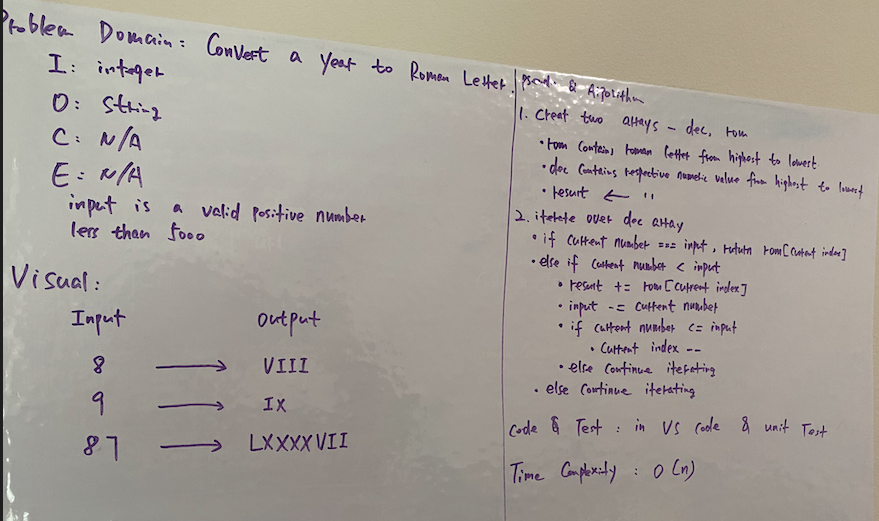 Problem Domain: Convert a year to Roman Letter.
I: integer
O: String
C: N/A
E: N/A
input is a valid positive number
less than 5000
Visual:
Input Output
8 → VIII
9 → IX
87 → LXXXXVII
Pseud. & Algorithm
1. Creat two arrays - dec, rom
• rom contains roman letter from highest to lowest
• dec contains respective numeric value from highest to lowest
• result ← ''
2. iterete over dec array
• if current number === input, return rom[current index]
• else if current number < input
• result += rom[current index]
• input -= current number
• if current number <= input
• Current index --
• else Continue iterating
• else Continue iterating
Code & Test : in VS code & unit Test
Time Complexity : O(n)